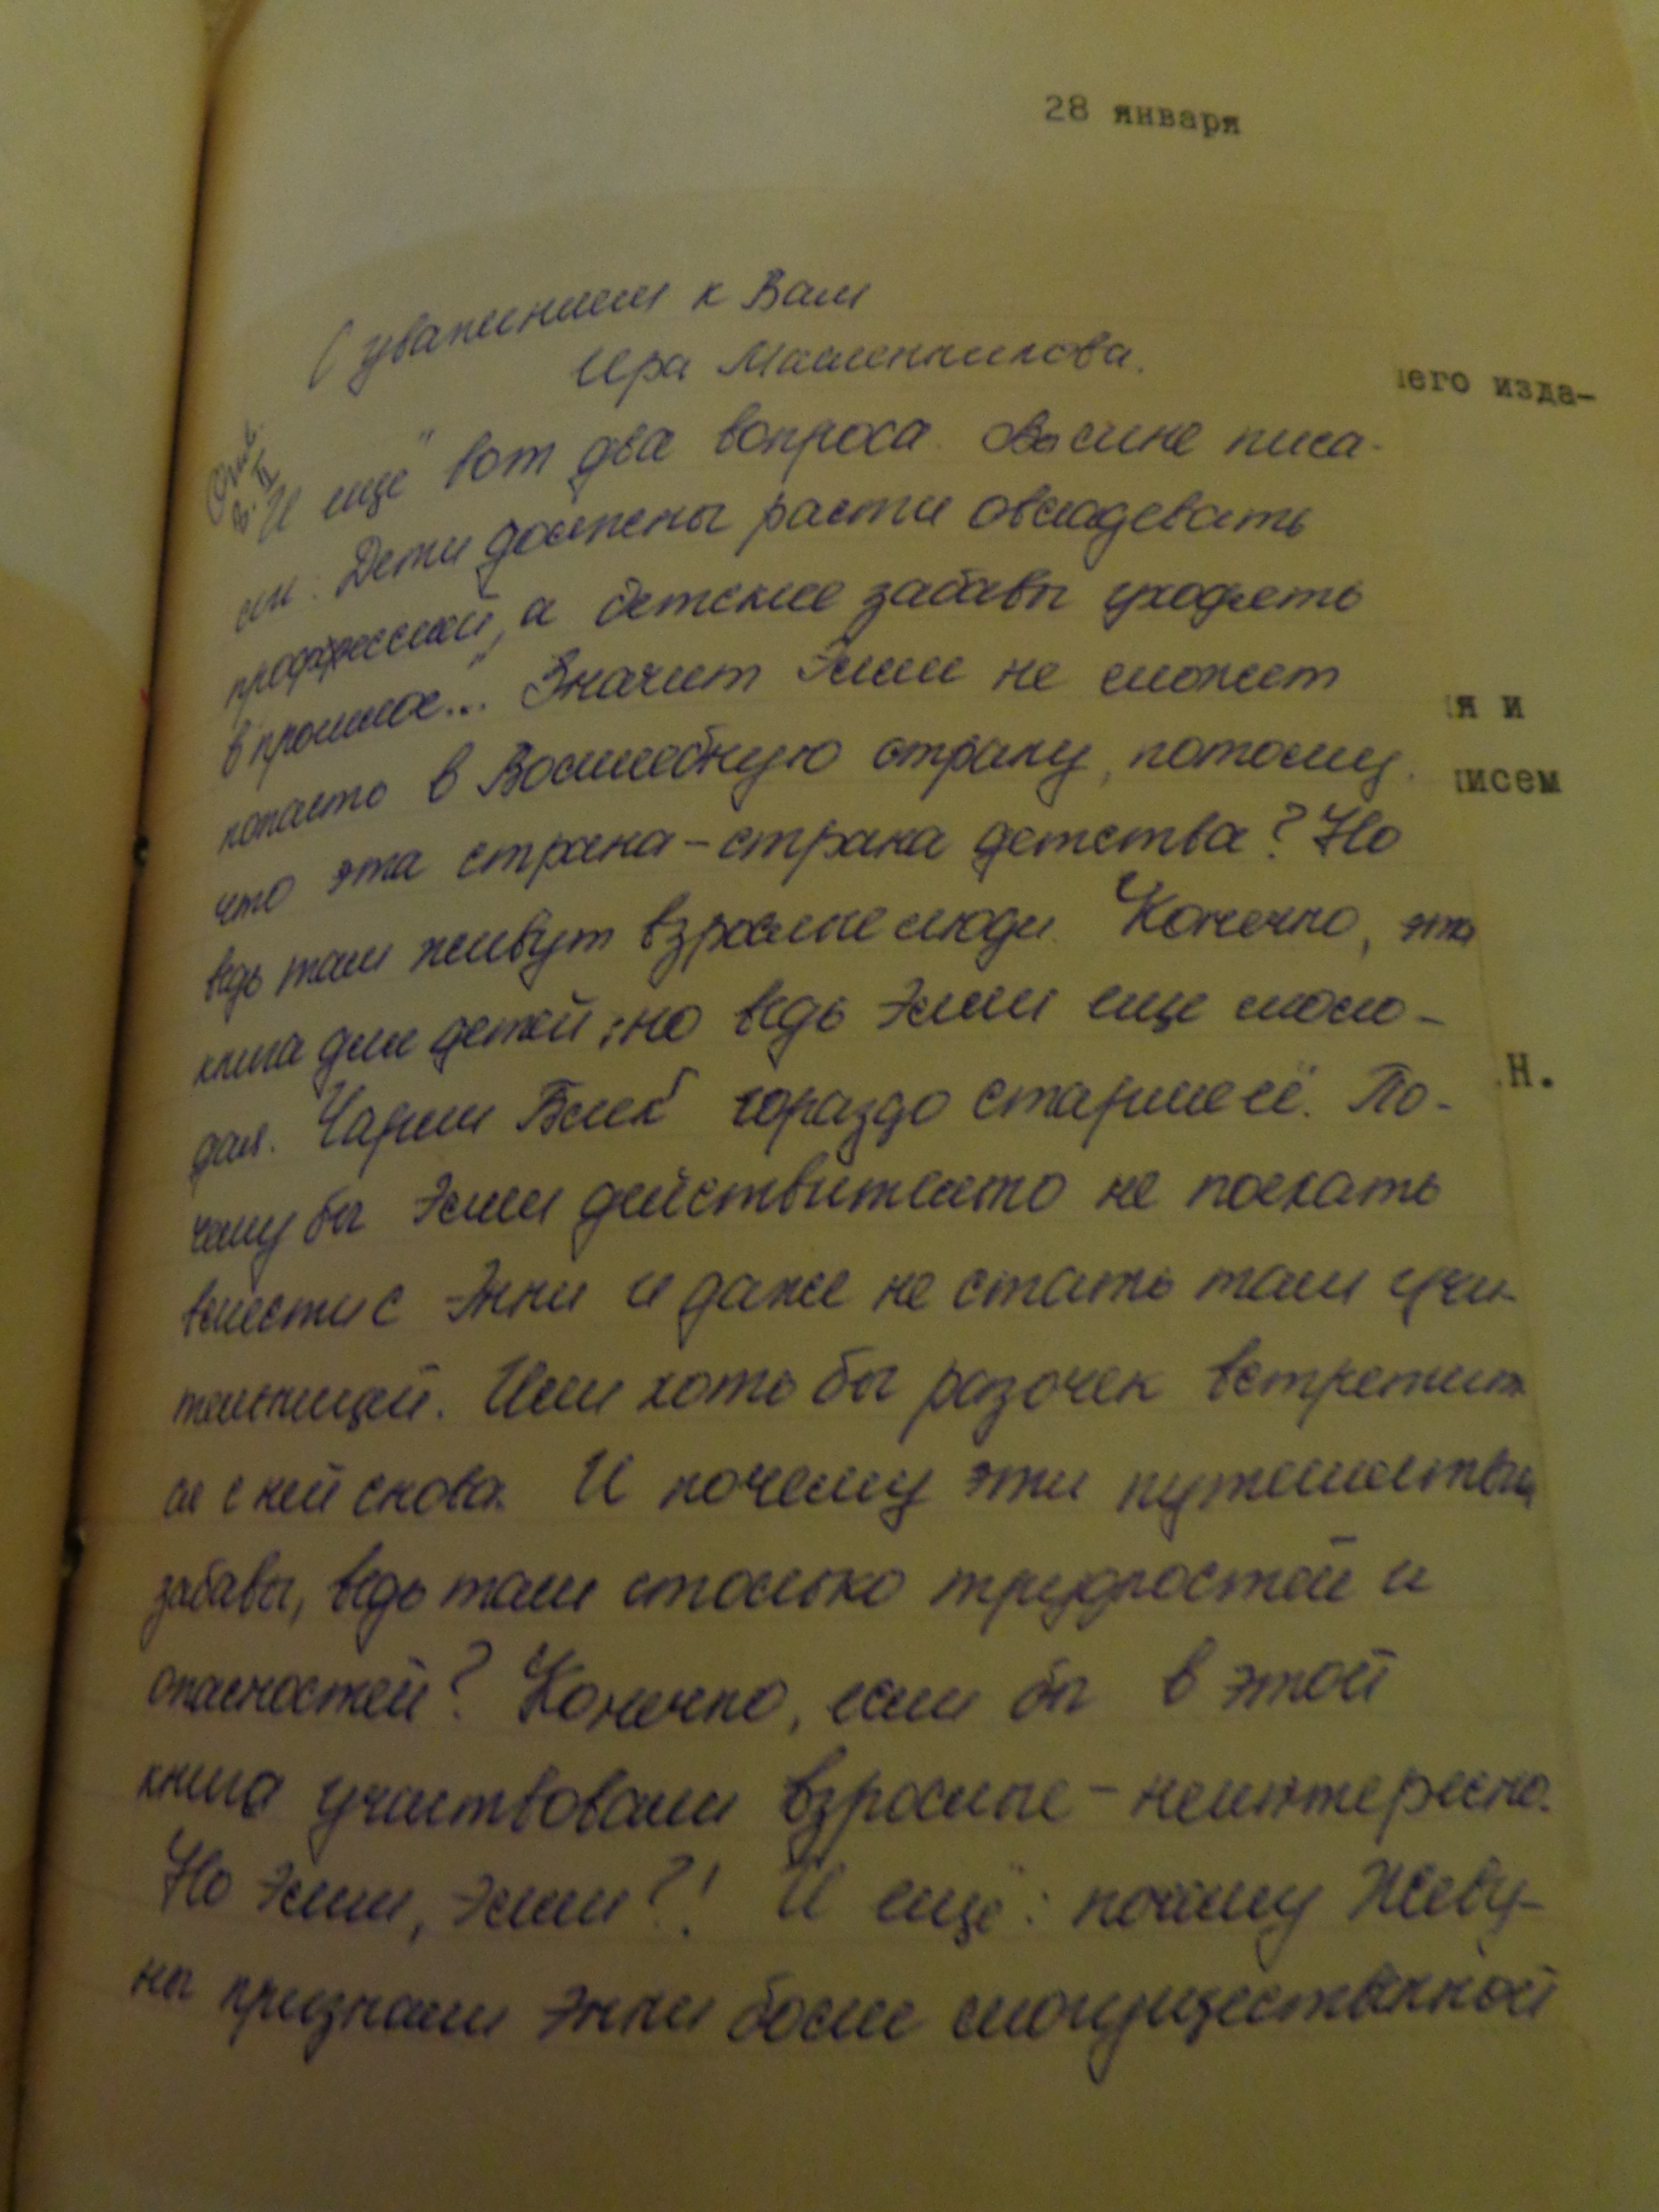 28 января
С уважением к Вам
Ира Машенникова.
его изда-
И ещё вот два вопроса. Вы мне писа-
ли: Дети должны расти овладевать
профессией, а детские забавы уходять
в прошлое... Значит Элли не сможет
я и
попасть в Волшебную страну, потому
исем
что эта страна - страна детства? Но
ведь там живут взрослые люди. Конечно, эта
книга для детей, но ведь Элли еще моло-
Н.
дая. Чарли Блек гораздо старше её. По-
чему бы Элли действительно не поехать
вместе с Энни и даже не стать там учи-
тельницей. Или хоть бы разочек встретить
ся с ней снова. И почему эти путешествия
забавы, ведь там столько трудностей и
опасностей? Конечно, если бы в этой
книга участвовали взрослые - неинтересно.
Но Элли, Элли?! И ещё: почему Жеву-
ны признали Энни более могущественной